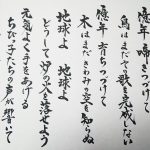 億年 啼きつづけて
鳥はまだ歌を完成しない
億年 育ちつづけて
木はまだきわみの空を知らぬ
地球よ 地球よ
どうして夕の入を落せよう
元気よく手をあげる
ちび子たちの声が響いて